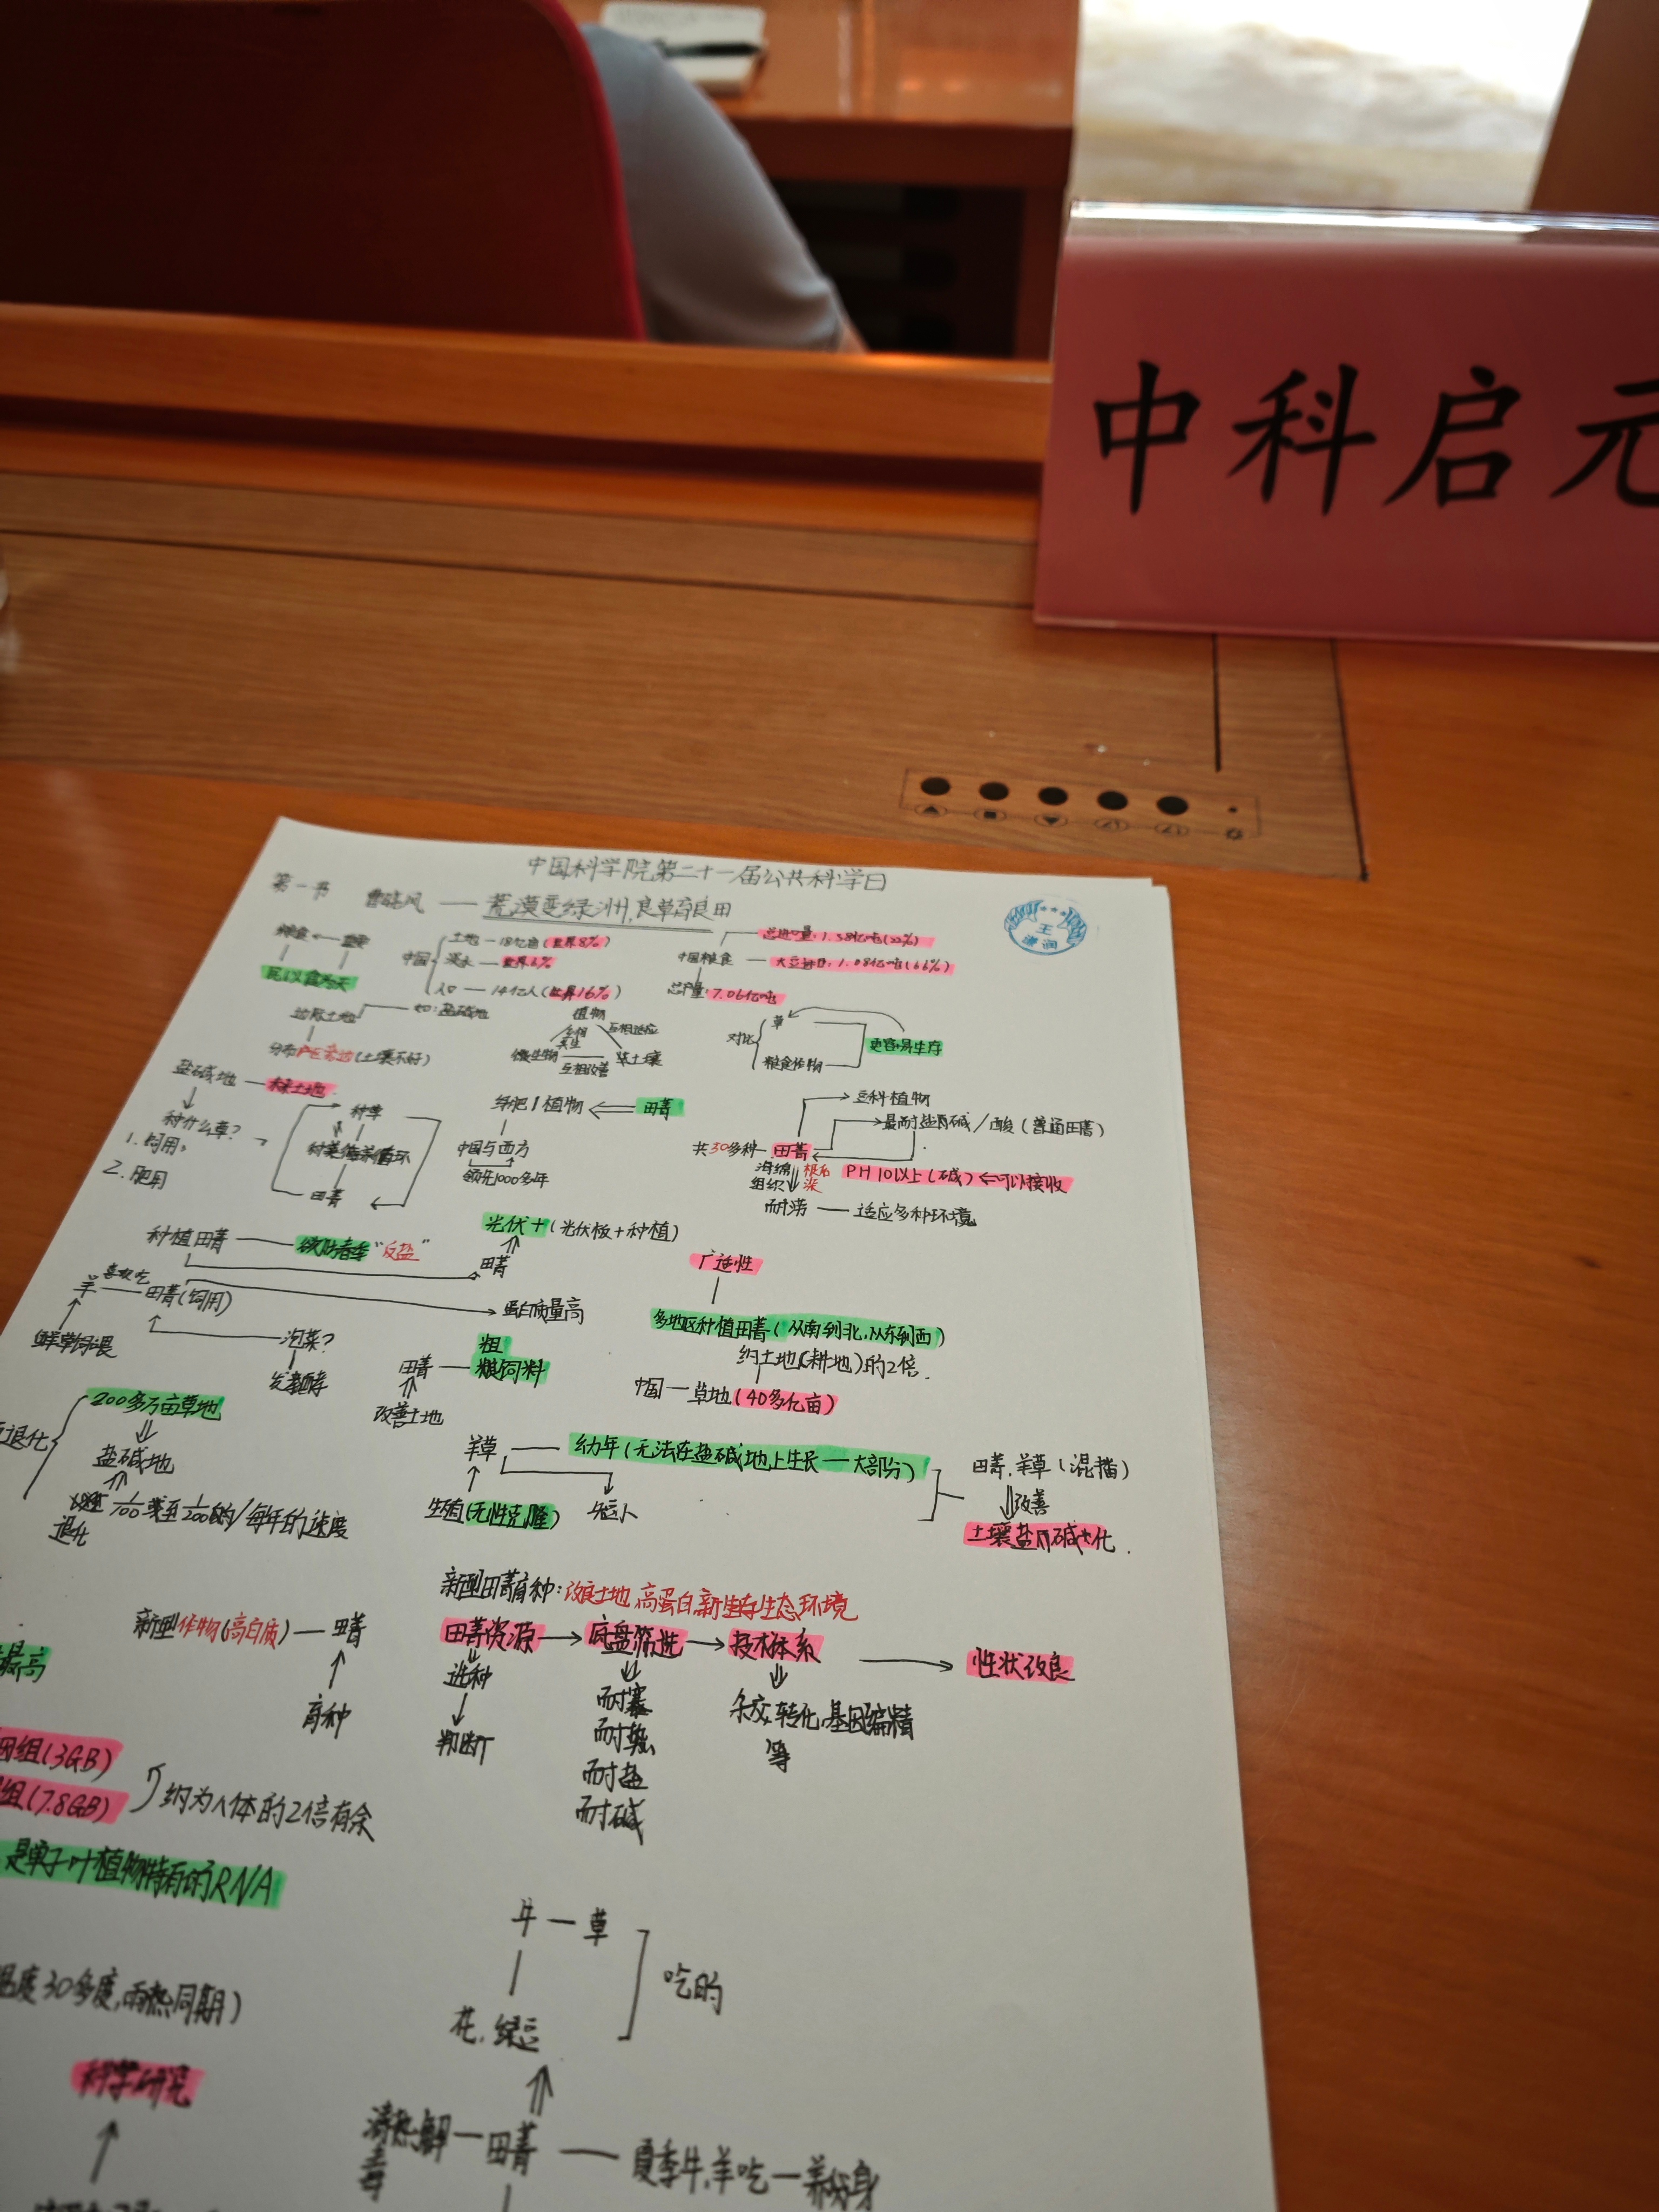 中科启元
中国科学院第二十一届公共科学日
第一书 曹晓风 — 荒漠变绿洲,良草育良田
王
谦润
粮食
民以食为天
中国
土地 — 18亿亩(世界8%)
淡水 — 世界6%
人口 — 14亿人(世界16%)
中国粮食
总进口量:1.58亿吨(22%)
大豆进口:1.08亿吨(66%)
总产量:7.06亿吨
边际土地 — 如:盐碱地
(土壤不好)
植物
互相适应
微生物
互相改善
土壤
对比
草
粮食作物
更容易生存
盐碱地 —
种什么草?
1. 饲用
2. 肥用
种草
田菁
绿肥植物 ⇐ 田菁
中国与西方
领先1000多年
共30多种 — 田菁
豆科植物
最耐盐碱/酸(普通田菁)
PH10以上(碱)⇐可以接收
海绵
组织
耐涝 — 适应多种环境
种植田菁 — 春季"反盐"
光伏+(光伏板+种植)
田菁
羊 喜欢吃 田菁(饲用)
蛋白质量高
鲜草饲喂
泡菜?
发酵
田菁 —
粗
粮饲料
改善土地
广适性
多地区种植田菁(从南到北,从东到西)
约土地(耕地)的2倍.
中国 — 草地(40多亿亩)
退化
200多万亩草地
盐碱地
1/100 或至 1/200的/每年的速度
退化
羊草 — 幼年(无法在盐碱地上生长 — 大部分)
生殖(无性克隆)
矮小
田菁,羊草(混播)
改善
土壤盐碱化.
新型田菁育种:改良土地 高蛋白 新生存生态环境
新型作物(高白质) — 田菁
育种
田菁资源 → 底盘筛选 → 技术体系 → 性状改良
选种
判断
耐寒
耐热
耐盐
耐碱
杂交,转化,基因编精
等
最高
因组(3GB)
组(7.8GB)
约为人体的2倍有余
是单子叶植物特有的RNA
温度30多度,雨热同期)
科学研究
牛 — 草
花,绿豆
吃的
清热解 — 田菁 — 夏季牛,羊吃 — 养份身
毒